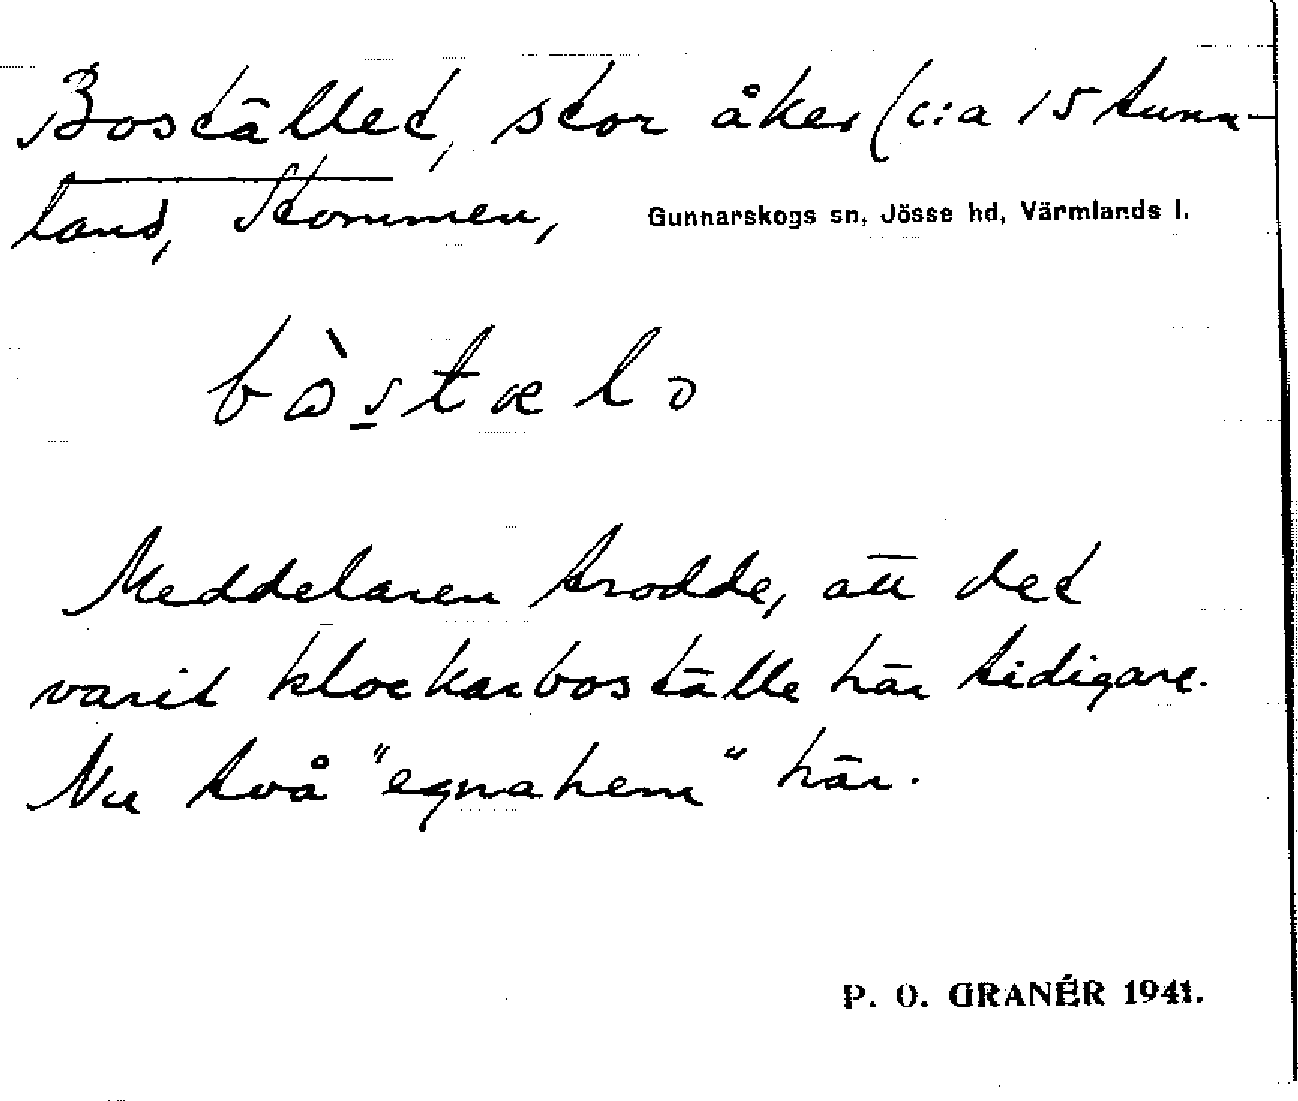 Bostället, stor åker (c:a 15 tunn-
land, Stommen, Gunnarskogs sn, Jösse hd, Värmlands l.
Meddelaren trodde, att det
varit klockarboställe här tidigare.
Nu två "egnahem" här.
P. O. GRANÉR 1941.